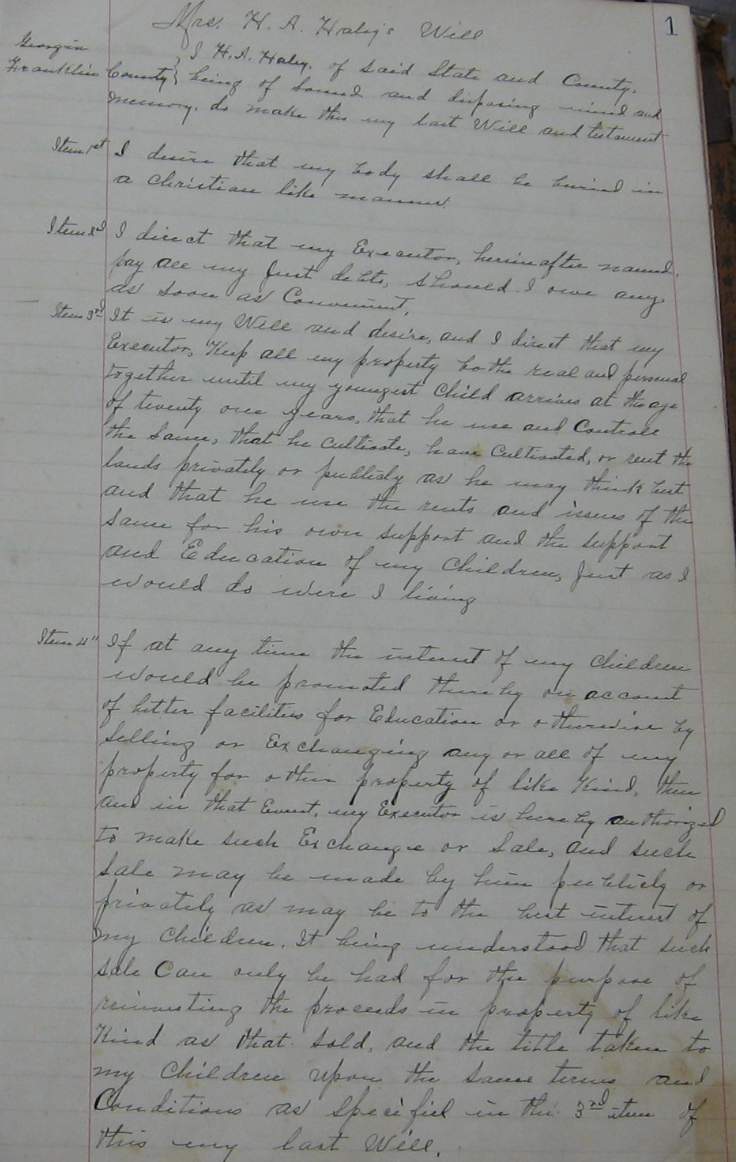 1
Mrs. H. A. Haley's Will
Georgia
Franklin County } I H. A. Haley, of said State and County,
being of sound and disposing mind and
memory, do make this my last Will and testament
Item 1st I desire that my body shall be buried in
a Christian like manner.
Item 2d I direct that my Executor, hereinafter named,
pay all my just debts, should I owe any,
as soon as Convenient.
Item 3rd It is my Will and desire, and I direct that my
Executor, Keep all my property both real and personal
together until my youngest Child arrives at the age
of twenty one years, that he use and Controle
the same, that he Cultivate, have Cultivated, or rent the
lands privately or publicly as he may think best
and that he use the rents and issues of the
same for his own support and the support
and Education of my Children, just as I
would do were I living
Item 4" If at any time the interest of my children
would be promoted thereby on account
of better facilities for Education or otherwise by
selling or Exchanging any or all of my
property for other property of like Kind, then
and in that Event, my Executor is hereby authorized
to make such Exchange or Sale, and such
sale may be made by him publicly or
privately as may be to the best interest of
my Children. It being understood that such
sale Can only be had for the purpose of
reinvesting the proceeds in property of like
Kind as that sold, and the title taken to
my Children upon the same terms and
Conditions as specified in the 3rd item of
this my last Will.